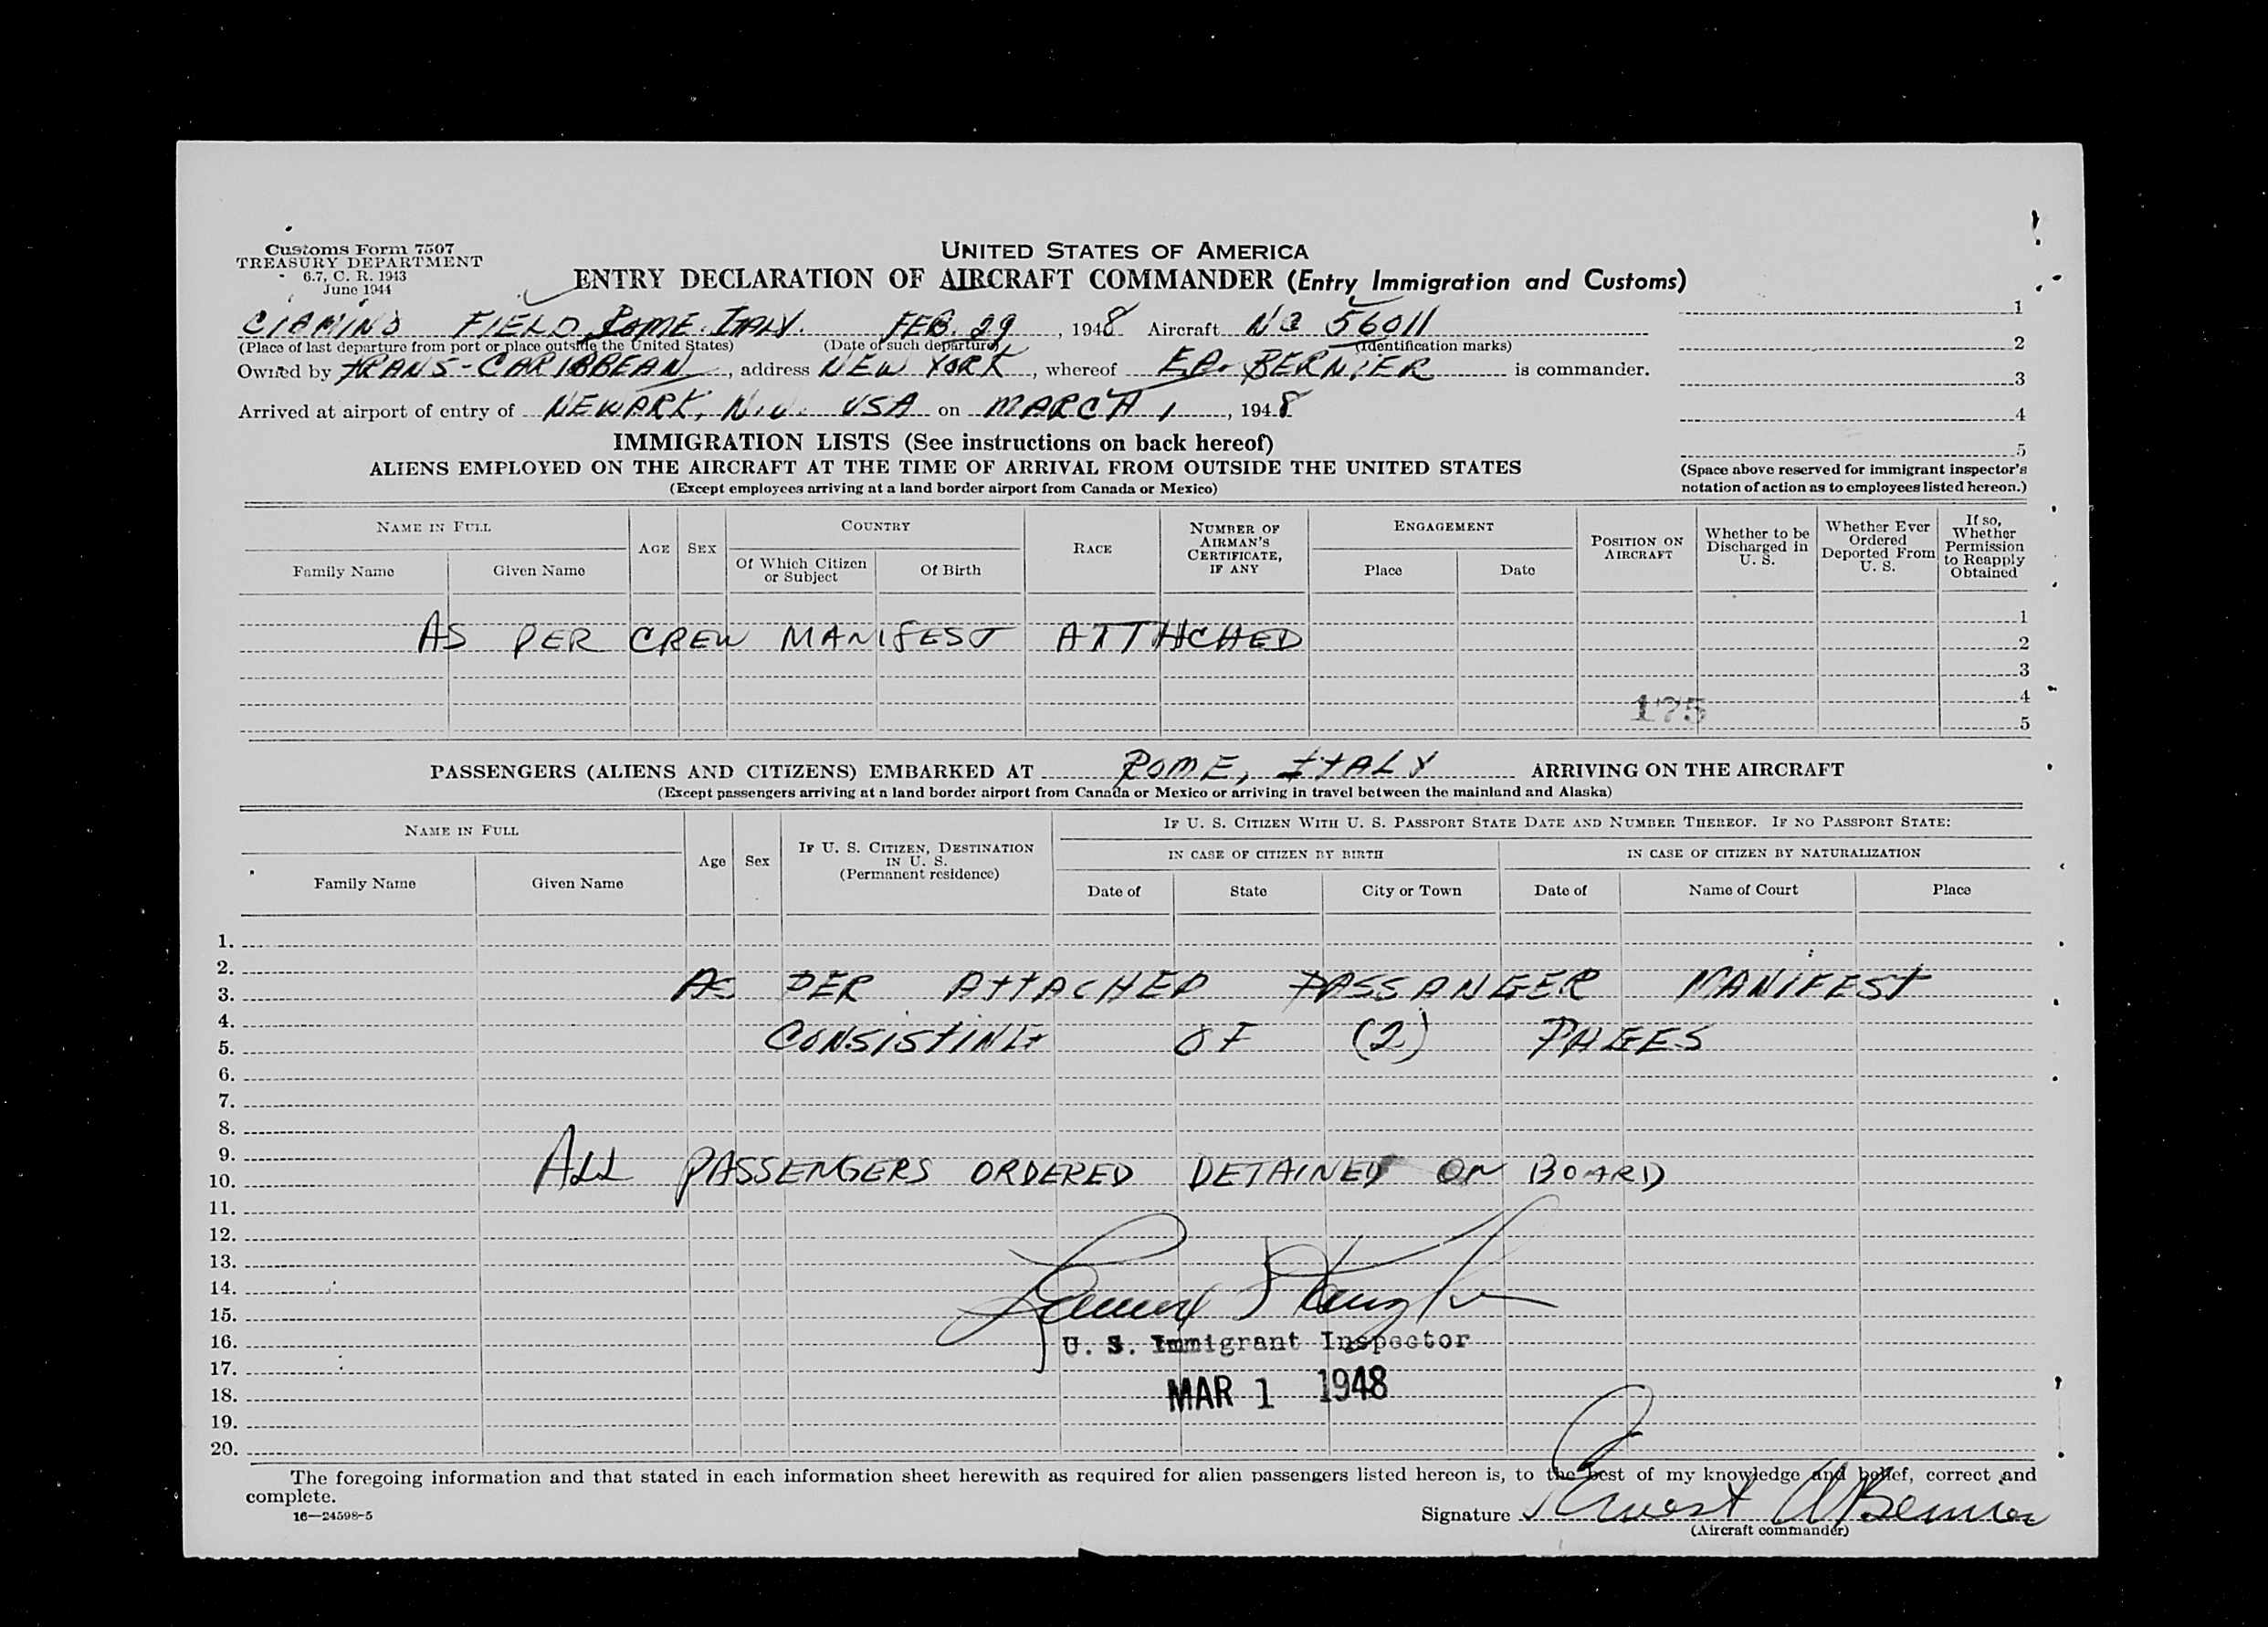 Customs Form 7507
TREASURY DEPARTMENT
6.7, C. R. 1943
June 1944
UNITED STATES OF AMERICA
ENTRY DECLARATION OF AIRCRAFT COMMANDER (Entry Immigration and Customs)
CIAMINO FIELD, ROME. ITALY. FEB. 29, 1948 Aircraft NC 56011
(Place of last departure from port or place outside the United States) (Date of such departure) (Identification marks)
Owned by TRANS-CARIBBEAN, address NEW YORK, whereof E.A. BERNIER is commander.
Arrived at airport of entry of NEWARK, N.J. USA on MARCH 1, 1948
1
2
3
4
5
(Space above reserved for immigrant inspector's
notation of action as to employees listed hereon.)
IMMIGRATION LISTS (See instructions on back hereof)
ALIENS EMPLOYED ON THE AIRCRAFT AT THE TIME OF ARRIVAL FROM OUTSIDE THE UNITED STATES
(Except employees arriving at a land border airport from Canada or Mexico)
NAME IN FULL
Family Name Given Name
AGE SEX
COUNTRY
Of Which Citizen or Subject Of Birth
RACE
NUMBER OF AIRMAN'S CERTIFICATE, IF ANY
ENGAGEMENT
Place Date
POSITION ON AIRCRAFT
Whether to be Discharged in U. S.
Whether Ever Ordered Deported From U. S.
If so, Whether Permission to Reapply Obtained
1
AS PER CREW MANIFEST ATTACHED 2
3
4
175
5
PASSENGERS (ALIENS AND CITIZENS) EMBARKED AT ROME, ITALY ARRIVING ON THE AIRCRAFT
(Except passengers arriving at a land border airport from Canada or Mexico or arriving in travel between the mainland and Alaska)
NAME IN FULL
Family Name Given Name
Age Sex
IF U. S. CITIZEN, DESTINATION IN U. S. (Permanent residence)
IF U. S. CITIZEN WITH U. S. PASSPORT STATE DATE AND NUMBER THEREOF. IF NO PASSPORT STATE:
IN CASE OF CITIZEN BY BIRTH IN CASE OF CITIZEN BY NATURALIZATION
Date of State City or Town Date of Name of Court Place
1.
2.
3. AS PER ATTACHED PASSANGER MANIFEST
4.
5. CONSISTING OF (2) PAGES
6.
7.
8.
9.
10. ALL PASSENGERS ORDERED DETAINED ON BOARD
11.
12.
13.
14.
15.
16. U. S. Immigrant Inspector
17.
18. MAR 1 1948
19.
20.
The foregoing information and that stated in each information sheet herewith as required for alien passengers listed hereon is, to the best of my knowledge and belief, correct and
complete.
16—24598-5
Signature Ernest A Bernier
(Aircraft commander)